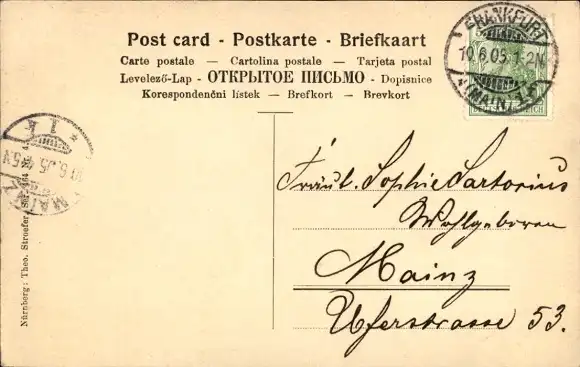 Post card - Postkarte - Briefkaart
Carte postale — Cartolina postale — Tarjeta postal
Levelező-Lap - ОТКРЫТОЕ ПИСЬМО - Dopisnice
Korespondenční lístek — Brefkort — Brevkort
FRANKFURT
10.6.05.1-2N.
(MAIN)
MAINZ
Nürnberg: Theo. Stroefer
Fräul. Sophie Sartorius
Wohlgeboren
Mainz
Uferstrasse 53.